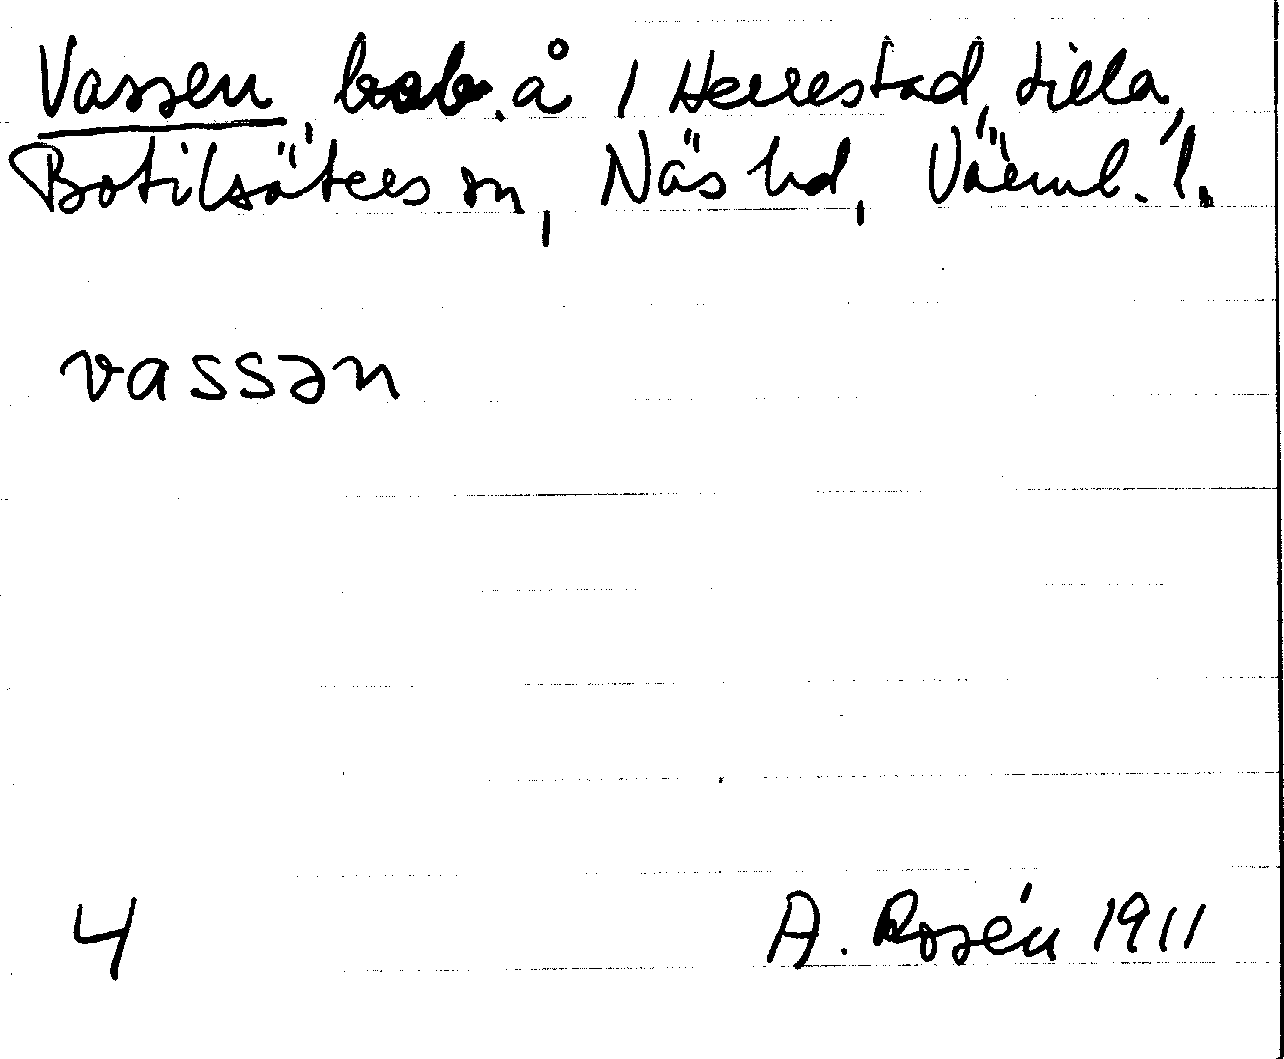 Vassen, beb. å 1 Herrestad, Lilla,
Botilsäters sn, Näs hd, Värml. l.
vassən
4 A. Rosén 1911